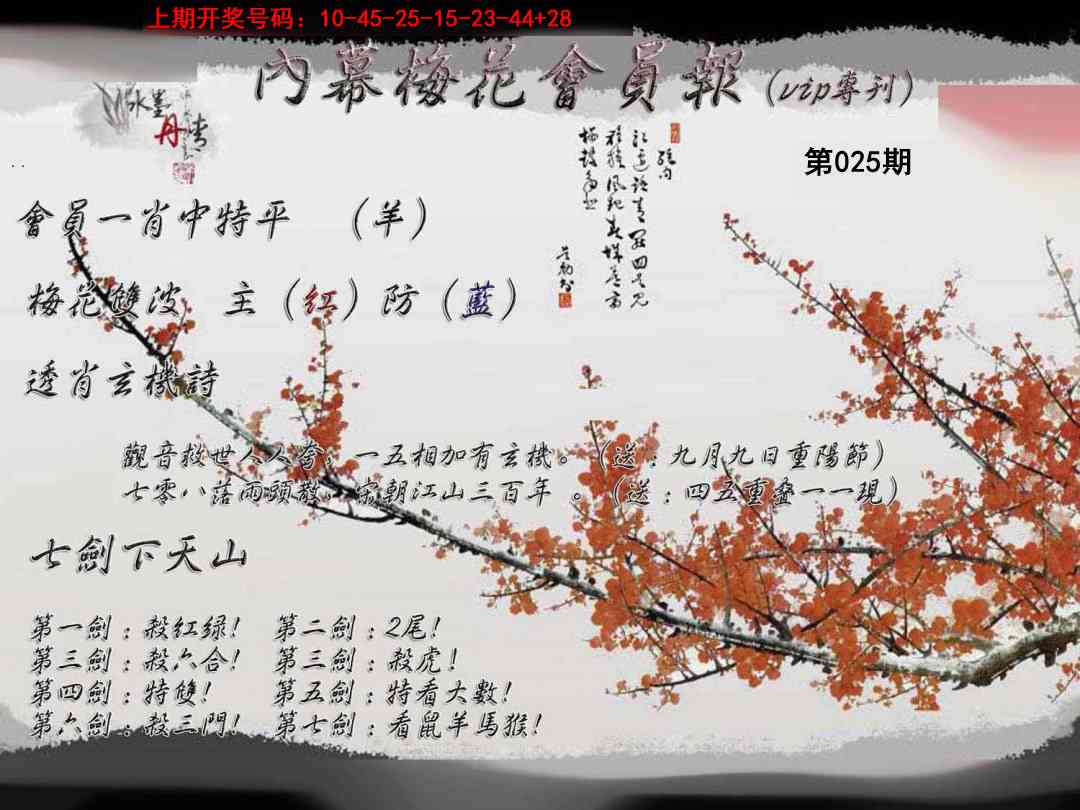 上期开奖号码：10-45-25-15-23-44+28
內幕梅花會員報（vip專刊）
水墨丹青
第025期
會員一肖中特平 （羊）
梅花雙波 主（紅）防（藍）
透肖玄機詩
觀音救世人人夸，一五相加有玄機。（送：九月九日重陽節）
七零八落兩頭散，宋朝江山三百年 。（送：四五重叠一一現）
七劍下天山
第一劍：殺紅绿！ 第二劍：2尾！
第三劍：殺六合！ 第三劍：殺虎！
第四劍：特雙！ 第五劍：特看大數！
第六劍：殺三門！ 第七劍：看鼠羊馬猴！